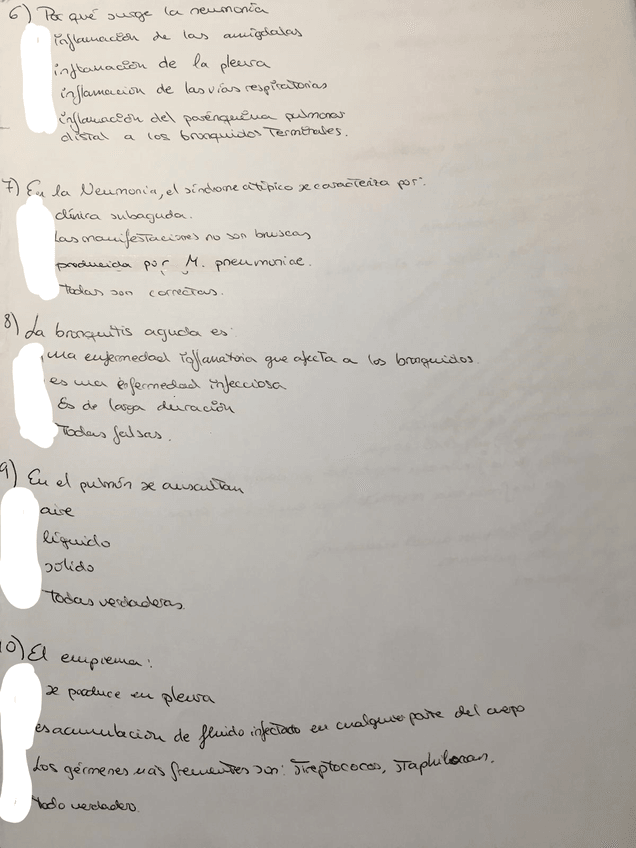 6) Por qué surge la neumonía
inflamación de las amígdalas
inflamación de la pleura
inflamacion de las vías respiratorias
inflamación del parénquima pulmonar
distal a los bronquidos Terminales.
7) En la Neumonía, el síndrome atípico se caracteriza por:
clínica subaguda.
Las manifestaciones no son bruscas
producida por M. pneumoniae.
Todas son correctas.
8) La bronquitis aguda es:
una enfermedad inflamatoria que afecta a los bronquidos.
es una enfermedad infecciosa
Es de larga duración
Todas falsas.
9) En el pulmón se auscultan
aire
líquido
sólido
Todas verdaderas.
10) El empiema:
se produce en pleura
es acumulacion de fluido infectado en cualquier parte del cuerpo
Los gérmenes más frecuentes son: Streptococos,
todo verdadero.